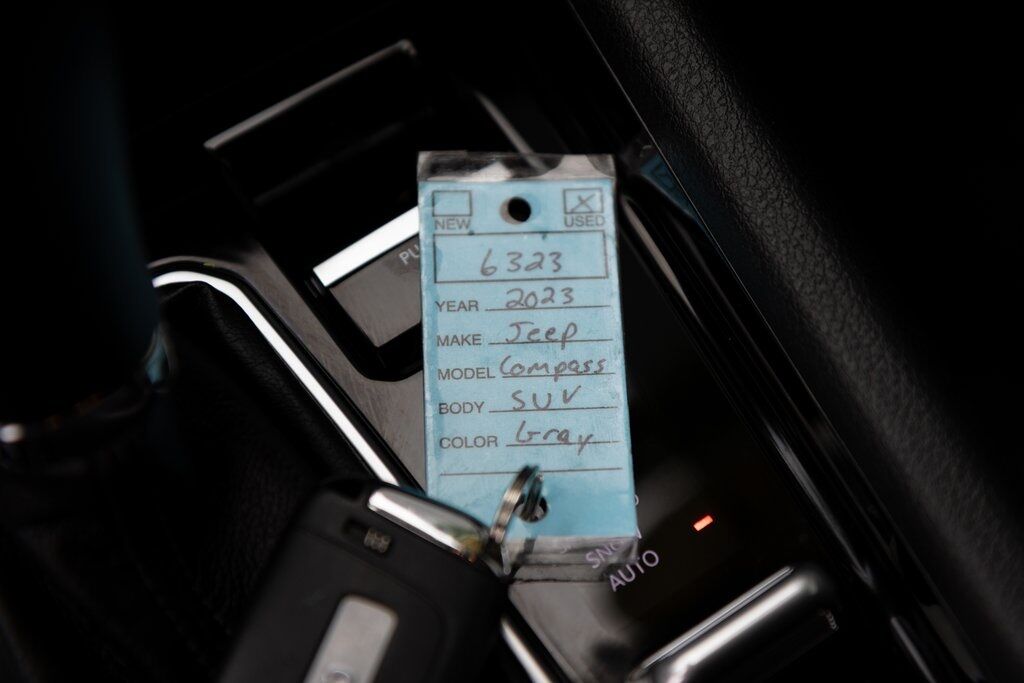 NEW USED
6323
YEAR 2023
MAKE Jeep
MODEL Compass
BODY SUV
COLOR Gray
AUTO